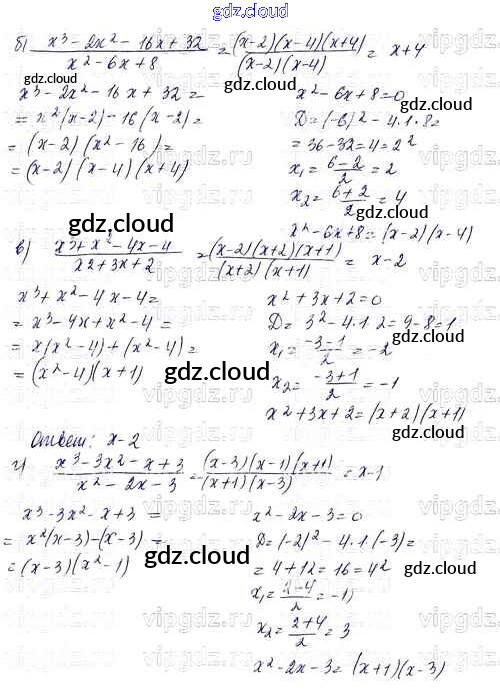 gdz.cloud
б) (x³ - 2x² - 16x + 32)/(x² - 6x + 8) = ((x-2)(x-4)(x+4))/((x-2)(x-4)) = x+4
gdz.cloud
gdz.cloud
x³ - 2x² - 16x + 32 =
= x²(x-2) - 16(x-2) =
= (x-2)(x² - 16) =
= (x-2)(x-4)(x+4)
x² - 6x + 8 = 0
D = (-6)² - 4·1·8 =
= 36 - 32 = 4 = 2²
x₁ = (6-2)/2 = 2
x₂ = (6+2)/2 = 4
x² - 6x + 8 = (x-2)(x-4)
gdz.cloud
gdz.cloud
в) (x³ + x² - 4x - 4)/(x2 + 3x + 2) = ((x-2)(x+2)(x+1))/((x+2)(x+1)) = x-2
x³ + x² - 4x - 4 =
= x³ - 4x + x² - 4 =
= x(x² - 4) + (x² - 4) =
= (x² - 4)(x+1)
x² + 3x + 2 = 0
D = 3² - 4·1·2 = 9 - 8 = 1
x₁ = (-3-1)/2 = -2
x₂ = (-3+1)/2 = -1
x² + 3x + 2 = (x+2)(x+1)
gdz.cloud
gdz.cloud
Ответ: x-2
г) (x³ - 3x² - x + 3)/(x² - 2x - 3) = ((x-3)(x-1)(x+1))/((x+1)(x-3)) = x-1
x³ - 3x² - x + 3 =
= x²(x-3) - (x-3) =
= (x-3)(x² - 1)
x² - 2x - 3 = 0
D = (-2)² - 4·1·(-3) =
= 4 + 12 = 16 = 4²
x₁ = (2-4)/2 = -1
x₂ = (2+4)/2 = 3
x² - 2x - 3 = (x+1)(x-3)
gdz.cloud
gdz.cloud
vipgdz.ru